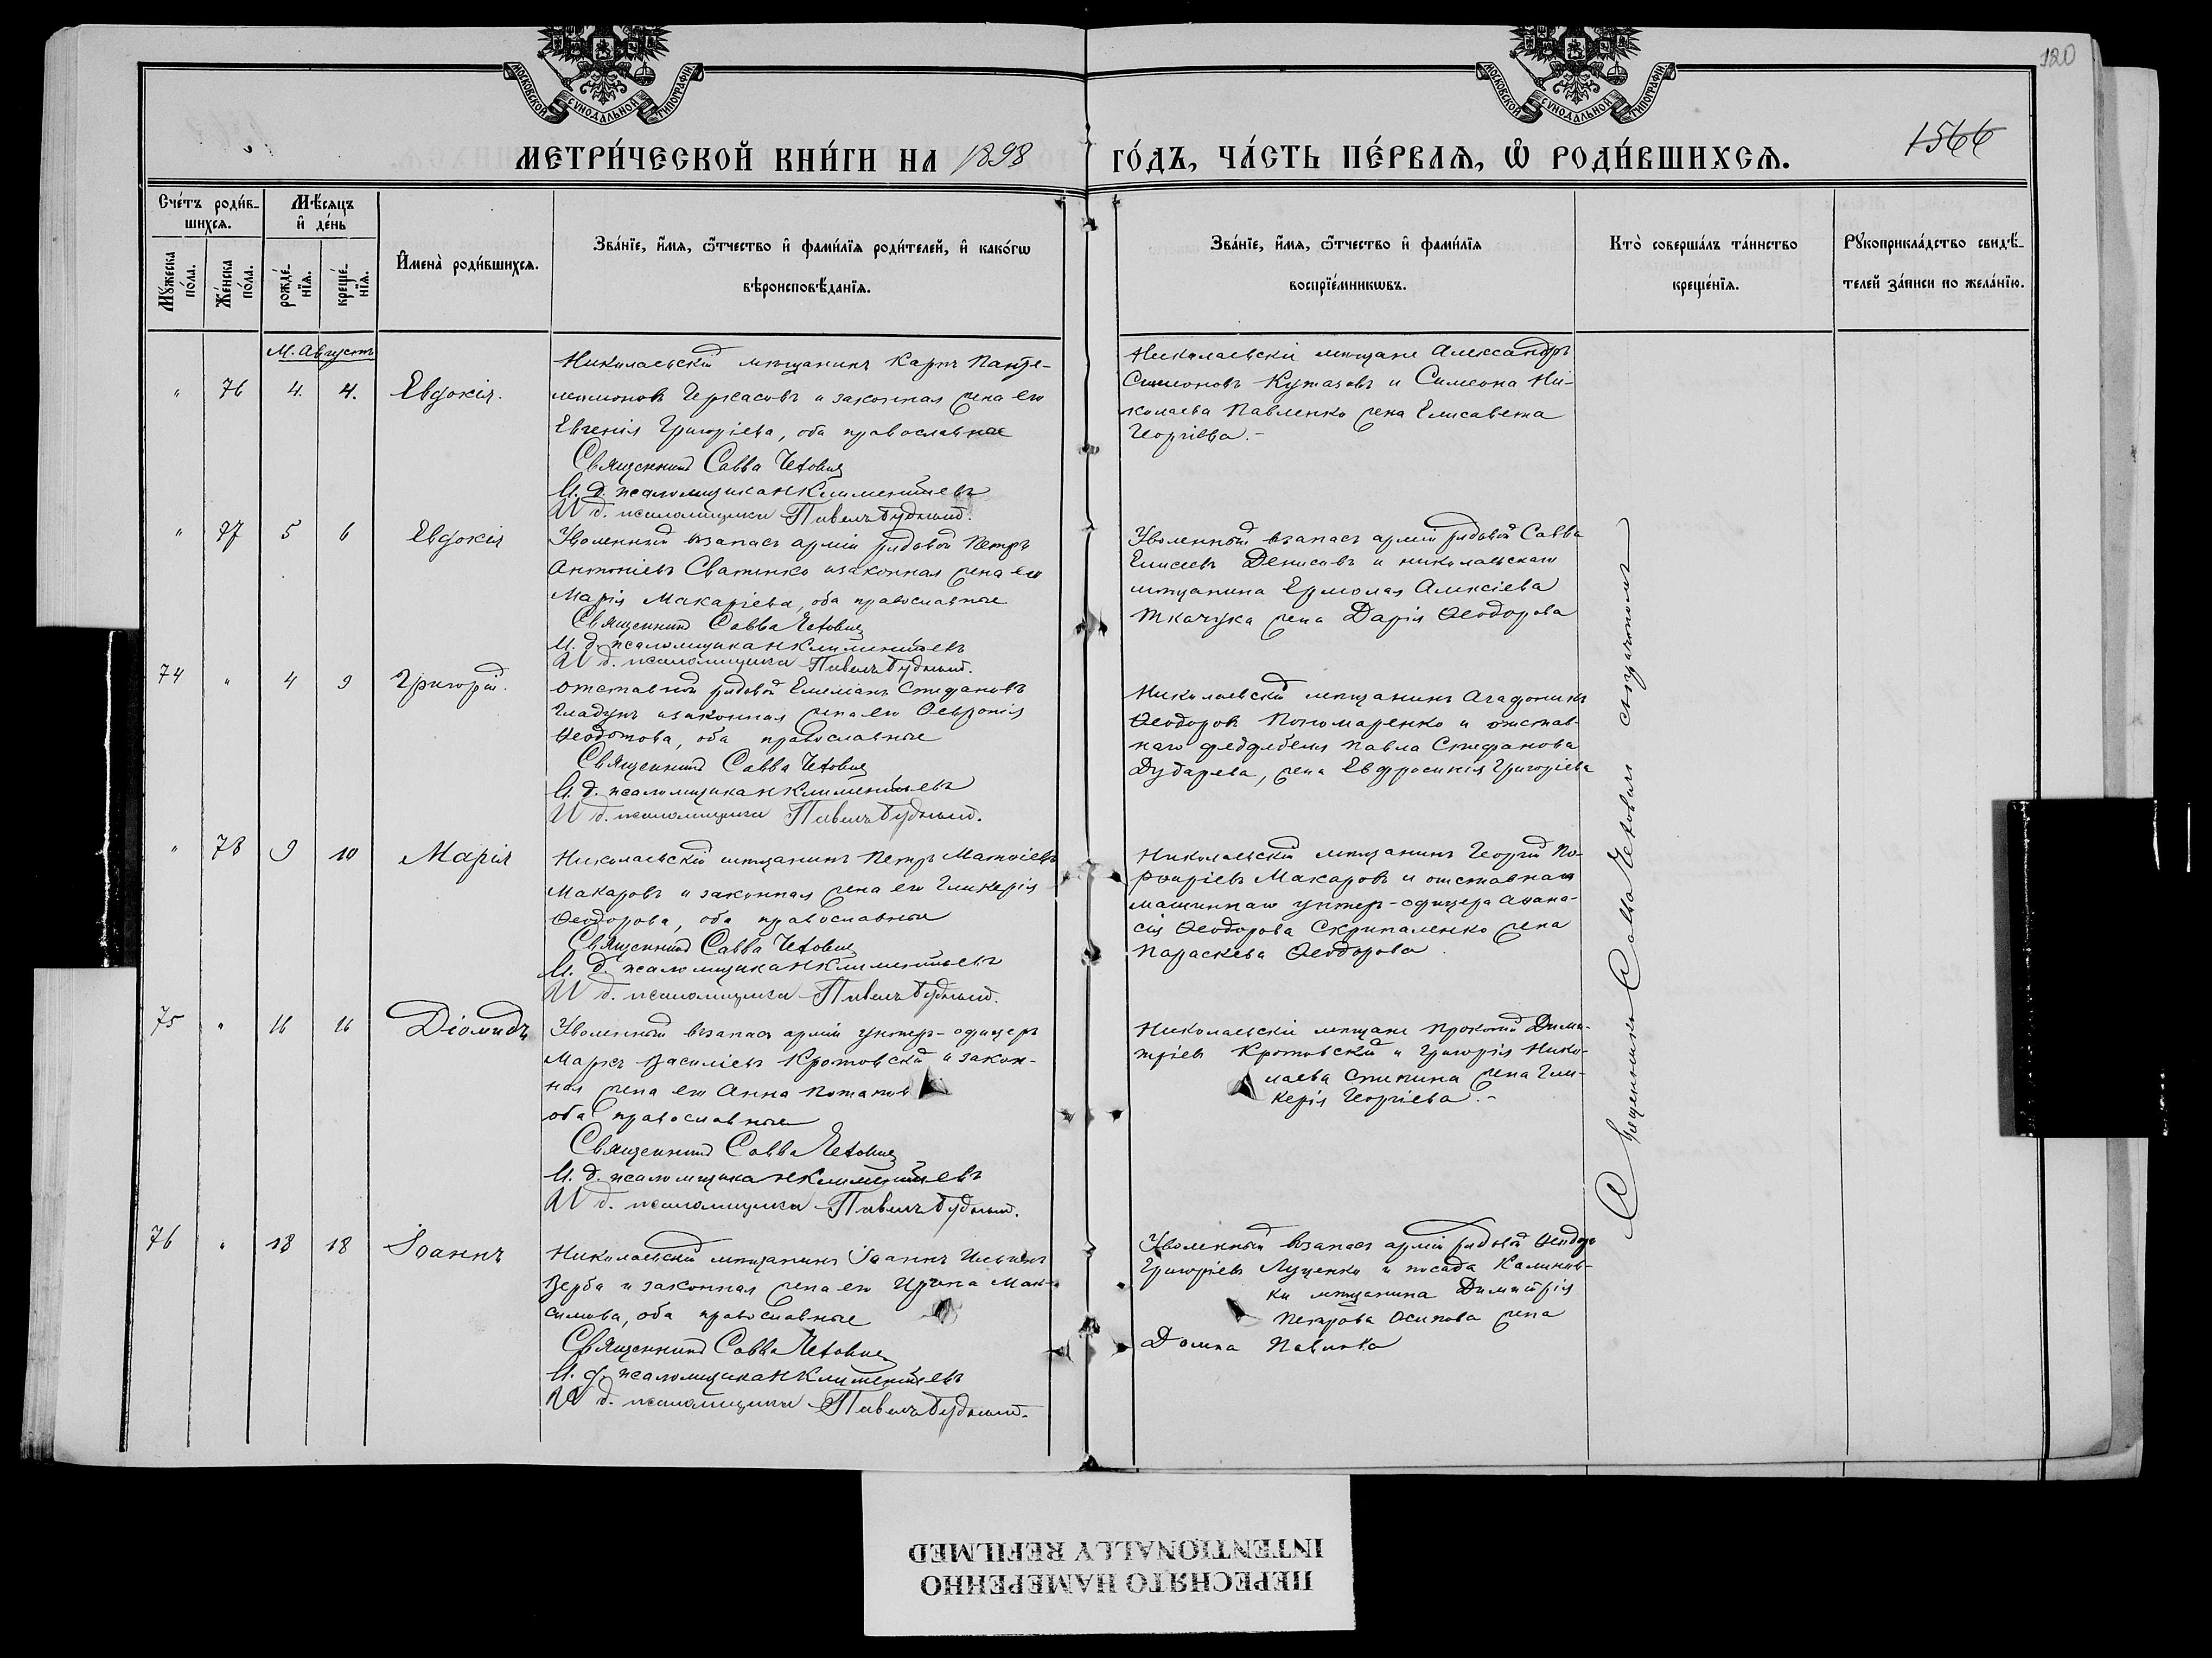 МОСКОВСКОЙ СѴНОДАЛЬНОЙ ТИПОГРАФІИ
МОСКОВСКОЙ СѴНОДАЛЬНОЙ ТИПОГРАФІИ
120
МЕТРИ́ЧЕСКОЙ КНИ́ГИ НА 1898 ГО́ДЪ, ЧА́СТЬ ПЕ́РВАЯ, Ѡ РОДИ́ВШИХСЯ.
1566
Сче́тъ роди́в-
шихся.
Мꙋ́жеска по́ла.
Же́нска по́ла.
Мѣ́сяцъ
и де́нь
рожде́-
нїя.
креще́-
нїя.
Имена̀ роди́вшихся.
Зва́нїе, и́мя, ѻ́тчество и фами́лїя роди́телей, и како́гѡ
вѣроисповѣ́данїя.
Зва́нїе, и́мя, ѻ́тчество и фами́лїя
воспрїе́мникѡвъ.
Кто̀ соверша́лъ та́инство
креще́нїя.
Рꙋкоприкла́дство свидѣ́-
телей за́писи по жела́нїю.
М. Августъ
" 76 4. 4. Евдокія.
Николаевскій мѣщанинъ Карпъ Панте-
лемоновъ Черкасовъ и законная жена его
Евгенія Григоріева, оба православные
Священникъ Савва Чехович
И. д. псаломщика Н Климентьевъ
И д. псаломщика Павелъ Будный.
Николаевскіе мѣщане Александръ
Симеоновъ Кутазовъ и Симеона Ни-
колаева Павленко жена Елисавета
Георгіева.-
" 77 5 6 Евдокія
Уволенный въ запасъ арміи рядовой Петръ
Антоніевъ Сватенко и законная жена его
Марія Макаріева, оба православные
Священникъ Савва Чехович
И. д. псаломщика Н Климентьевъ
И д. псаломщика Павелъ Будный.
Уволенный въ запасъ арміи рядовой Савва
Елисеевъ Денисовъ и николаевскаго
мѣщанина Ермолая Алексіева
Ткачука жена Дарія Ѳеодорова
74 " 4 9 Григорій.
Отставной рядовой Емеліанъ Стефановъ
Гладунъ и законная жена его Ѳевронія
Ѳеодотова, оба православные
Священникъ Савва Чехович
И. д. псаломщика Н Климентьевъ
И д. псаломщика Павелъ Будный.
Николаевскій мѣщанинъ Агафоникъ
Ѳеодоровъ Пономаренко и отстав-
наго фельдфебеля Павла Стефанова
Дударева, жена Евфросинія Григоріева
" 78 9 10 Марія
Николаевскій мѣщанинъ Петръ Матѳіевъ
Макаровъ и законная жена его Гликерія
Ѳеодорова, оба православные
Священникъ Савва Чехович
И. д. псаломщика Н Климентьевъ
И д. псаломщика Павелъ Будный.
Николаевскій мѣщанинъ Георгій По-
рфиріевъ Макаровъ и отставнаго
машиннаго унтеръ-офицера Аѳана-
сія Ѳеодорова Скрипаленко жена
Параскева Ѳеодорова
75 " 16 16 Діомидъ
Уволенный въ запасъ арміи унтеръ-офицеръ
Маркъ Василіевъ Кротовскій и закон-
ная жена его Анна Потапов
оба православные
Священникъ Савва Чехович
И. д. псаломщика Н Климентьевъ
И д. псаломщика Павелъ Будный.
Николаевскіе мѣщане Прокопій Дими-
тріевъ Кротовскій и Григорія Нико-
лаева Степина жена Гли-
керія Георгіева.-
76 " 18 18 Іоаннъ
Николаевскій мѣщанинъ Іоаннъ Ильинъ
Верба и законная жена его Ирина Мак-
симова, оба православные
Священникъ Савва Чехович
И. д. псаломщика Н Климентьевъ
И д. псаломщика Павелъ Будный.
Уволенный въ запасъ арміи рядовой Ѳеодоръ
Григоріевъ Луценко и посада Калинов-
ки мѣщанина Димитрія
Петрова Осипова жена
Домна Павлова
Священникъ Савва Чехович съ псаломщикомъ
ПЕРЕСНЯТО НАМЕРЕННО
INTENTIONALLY REFILMED